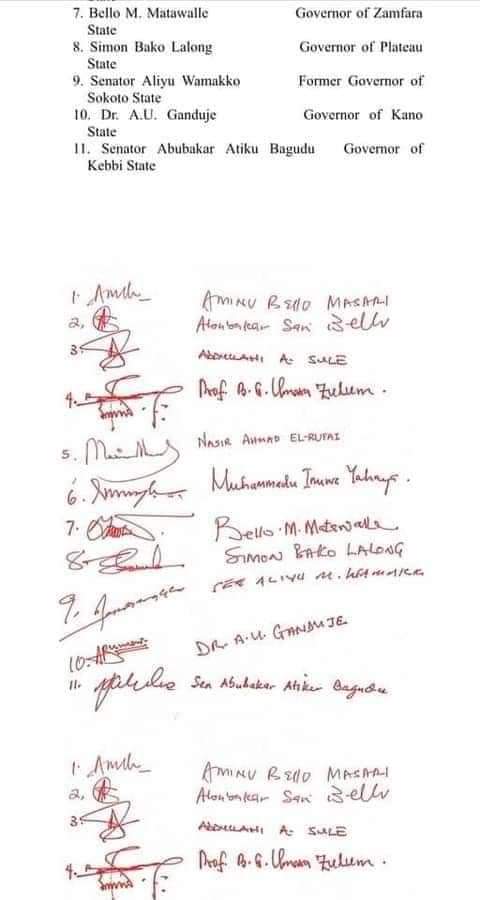 7. Bello M. Matawalle Governor of Zamfara
State
8. Simon Bako Lalong Governor of Plateau
State
9. Senator Aliyu Wamakko Former Governor of
Sokoto State
10. Dr. A.U. Ganduje Governor of Kano
State
11. Senator Abubakar Atiku Bagudu Governor of
Kebbi State
1. AMINU BELLO MASARI
2, Abubakar Sani Bello
3. ABDULLAHI A. SULE
4. Prof. B. G. Umara Zulum.
5. NASIR AHMAD EL-RUFAI
6. Muhammadu Inuwa Yahaya.
7. Bello. M. Matawalle
8- SIMON BAKO LALONG
9. SEN ALIYU M. WAMAKKO
10. DR. A.U. GANDUJE
11. Sen Abubakar Atiku Bagudu
1. AMINU BELLO MASARI
2, Abubakar Sani Bello
3. ABDULLAHI A. SULE
4. Prof. B. G. Umara Zulum.